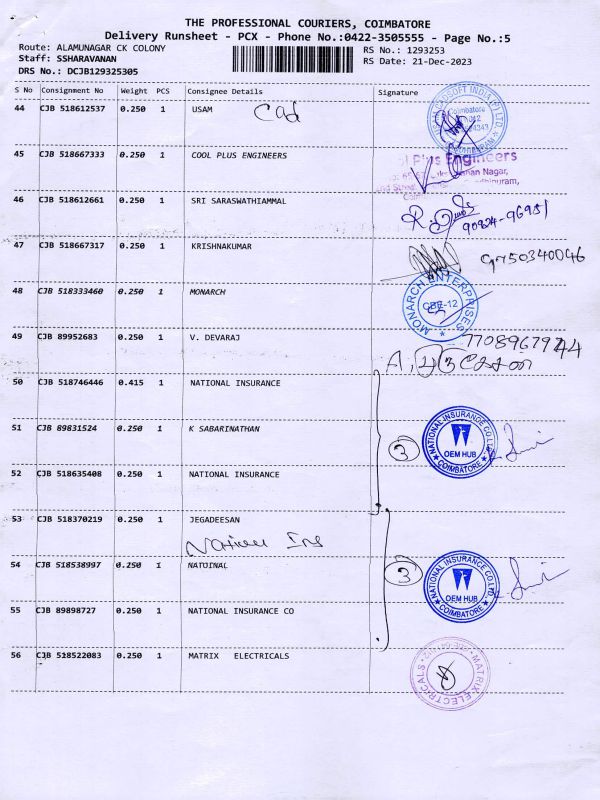 THE PROFESSIONAL COURIERS, COIMBATORE
Delivery Runsheet - PCX - Phone No.:0422-3505555 - Page No.:5
Route: ALAMUNAGAR CK COLONY
RS No.: 1293253
Staff: SSHARAVANAN
RS Date: 21-Dec-2023
DRS No.: DCJB129325305
S No Consignment No Weight PCS Consignee Details Signature
44 CJB 518612537 0.250 1 USAM
Coimbatore
45 CJB 518667333 0.250 1 COOL PLUS ENGINEERS
Plus Engineers
46 CJB 518612661 0.250 1 SRI SARASWATHIAMMAL
90824-96951
47 CJB 518667317 0.250 1 KRISHNAKUMAR
9750340046
48 CJB 518333460 0.250 1 MONARCH
MONARCH ENTERPRISES
CBE-12
49 CJB 89952683 0.250 1 V. DEVARAJ
50 CJB 518746446 0.415 1 NATIONAL INSURANCE
51 CJB 89831524 0.250 1 K SABARINATHAN
3
NATIONAL INSURANCE CO.LTD.
OEM HUB
COIMBATORE
52 CJB 518635408 0.250 1 NATIONAL INSURANCE
53 CJB 518370219 0.250 1 JEGADEESAN
54 CJB 518538997 0.250 1 NATOINAL
3
NATIONAL INSURANCE CO.LTD.
OEM HUB
COIMBATORE
55 CJB 89898727 0.250 1 NATIONAL INSURANCE CO
56 CJB 518522083 0.250 1 MATRIX ELECTRICALS
MATRIX ELECTRICALS